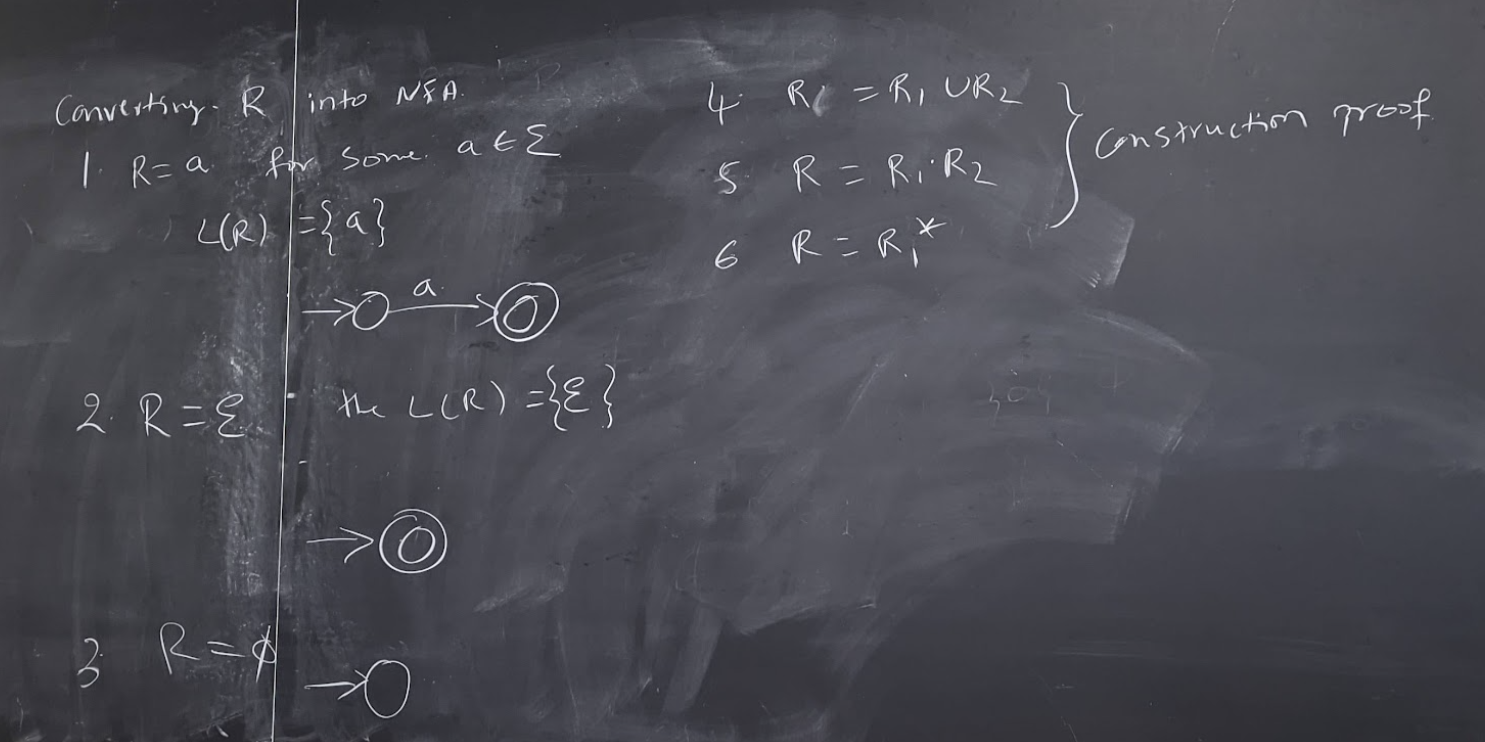 Converting R into NFA.
1. R = a for some a ∈ Σ
L(R) = {a}
a
2. R = ε the L(R) = {ε}
3 R = ϕ
4. R = R₁ ∪ R₂
5. R = R₁ · R₂
6 R = R₁*
Construction proof